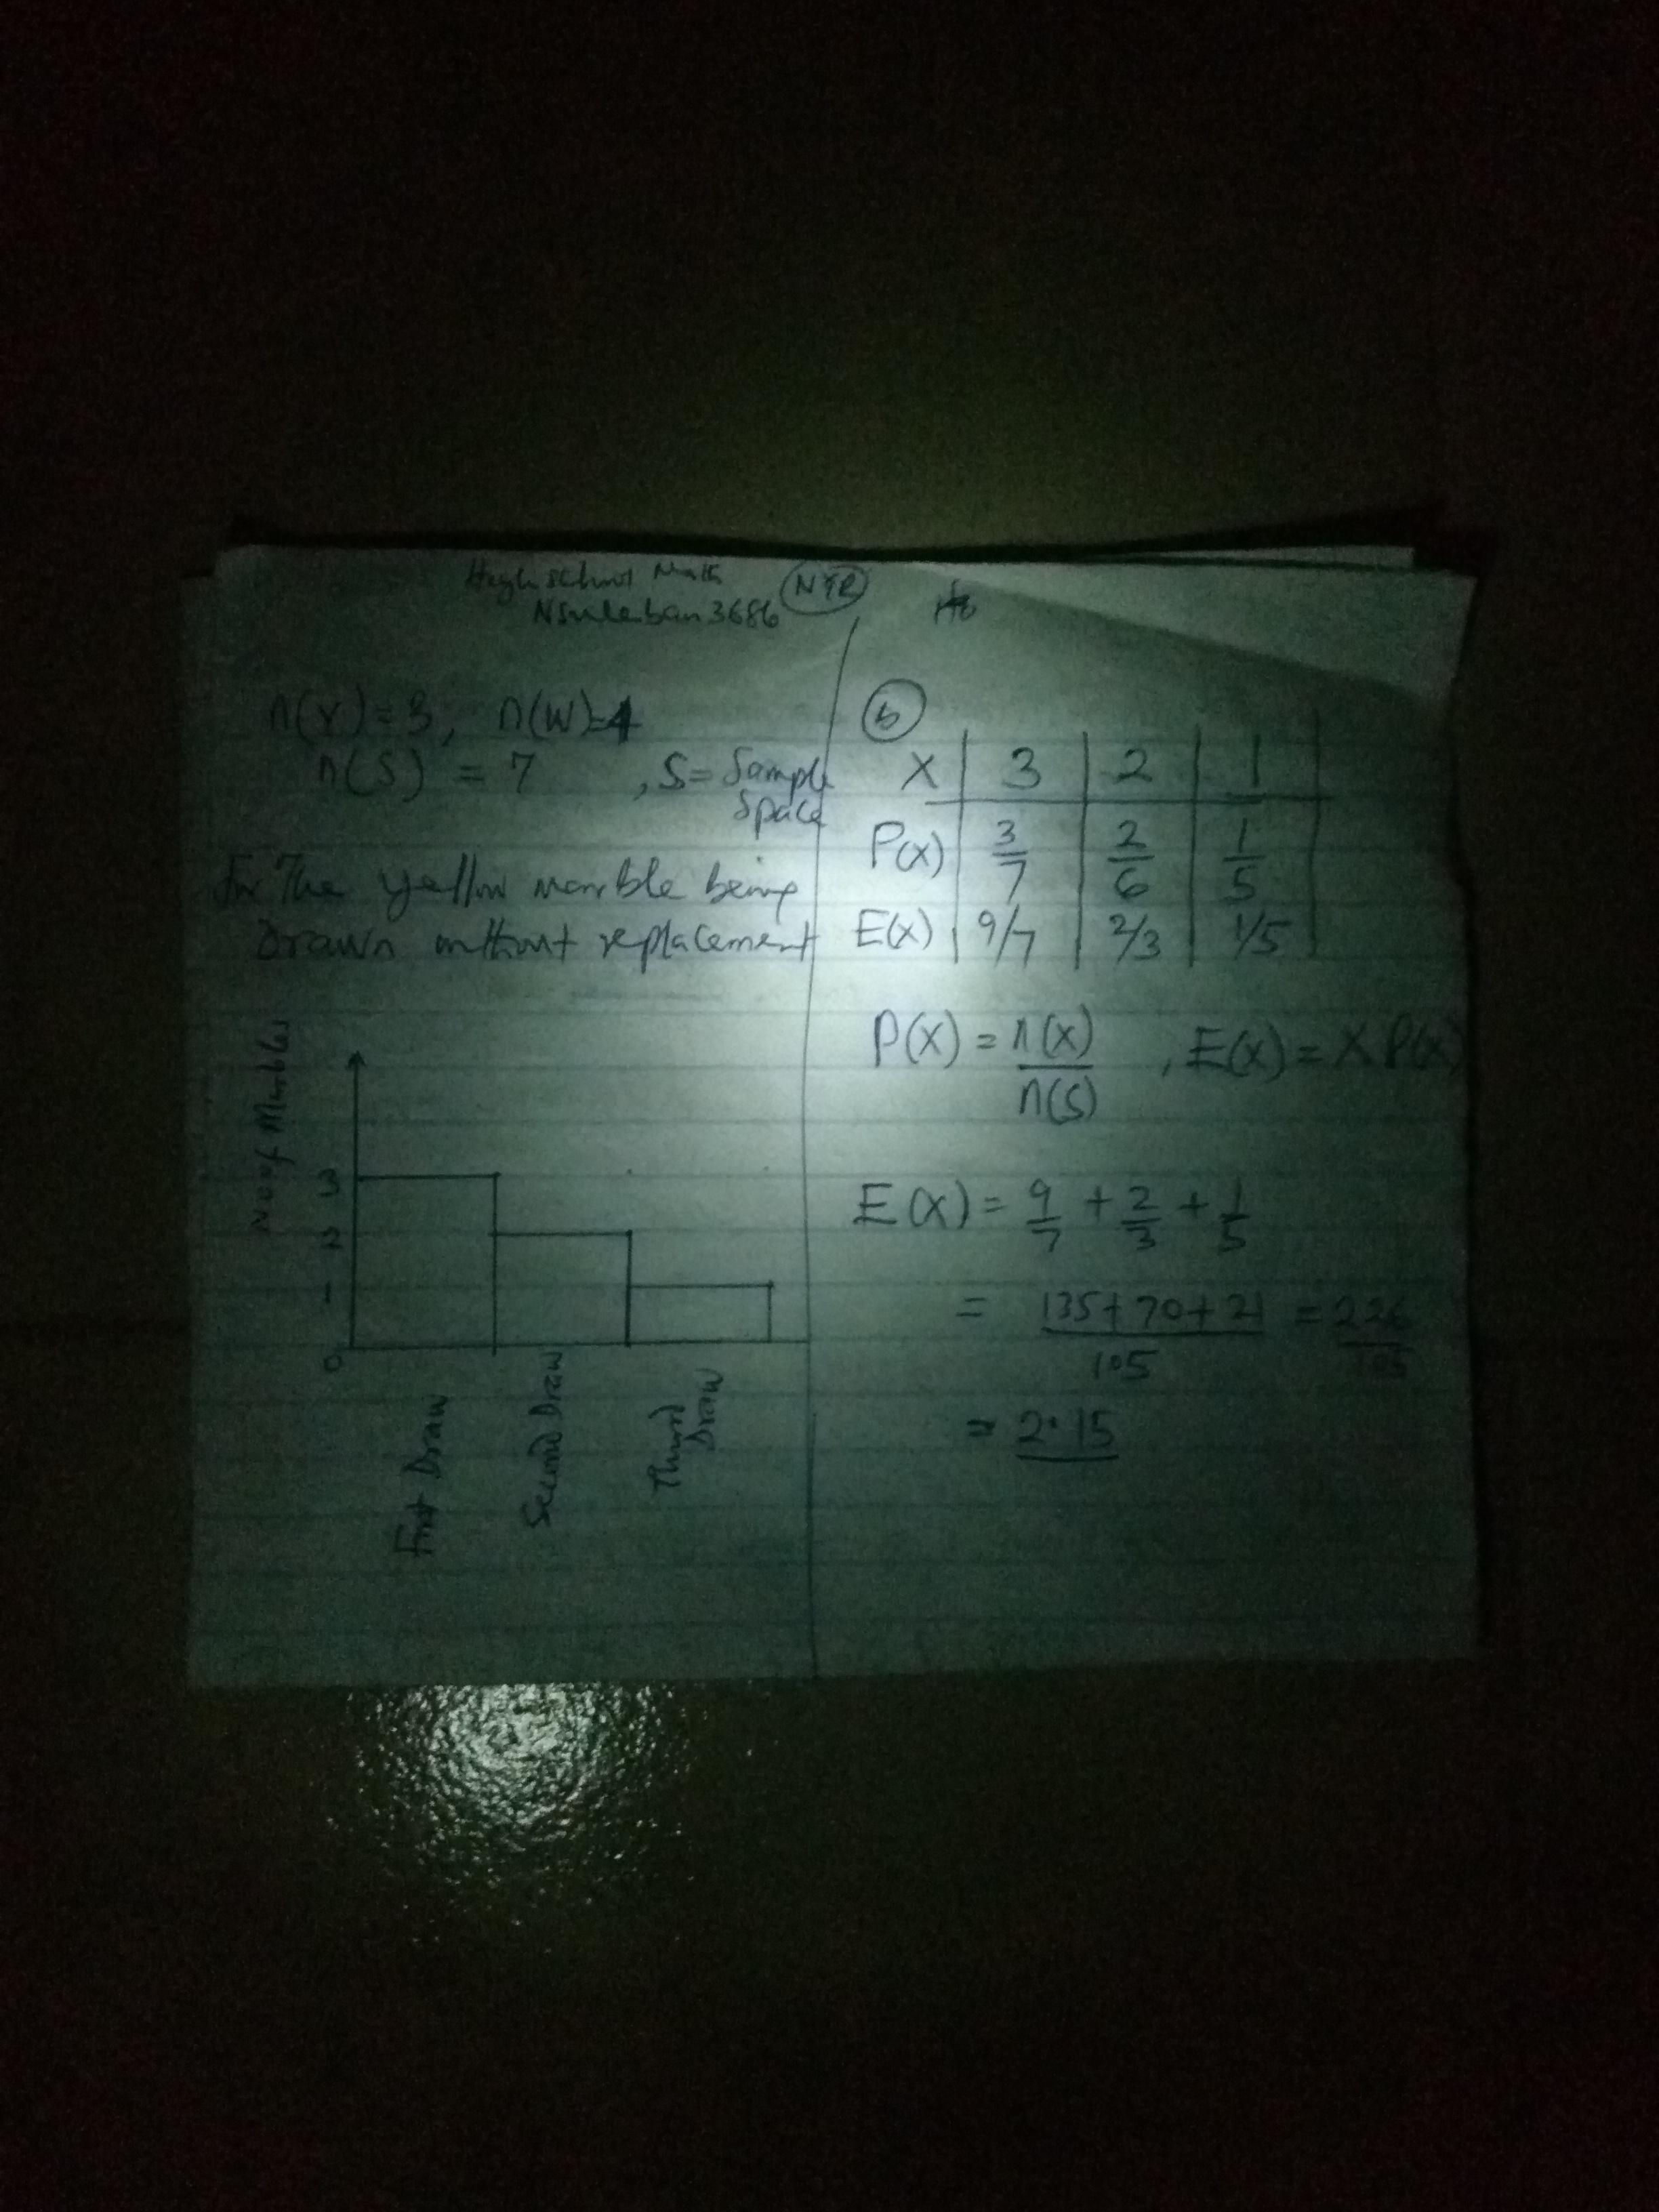 High school Math
NSuleiban3686
n(Y)=3, n(W)=4
n(S) = 7 , S= Sample
Space
For The yellow marble being
Drawn without replacement
No of Marbles
3
2
1
0
First Draw
Second Draw
Third
Draw
b
X 3 2 1
P(x) 3/7 2/6 1/5
E(x) 9/7 2/3 1/5
P(x) = n(x)/n(S) , E(x) = X P(x)
E(x) = 9/7 + 2/3 + 1/5
= 135+70+21/105 = 226/105
= 2.15